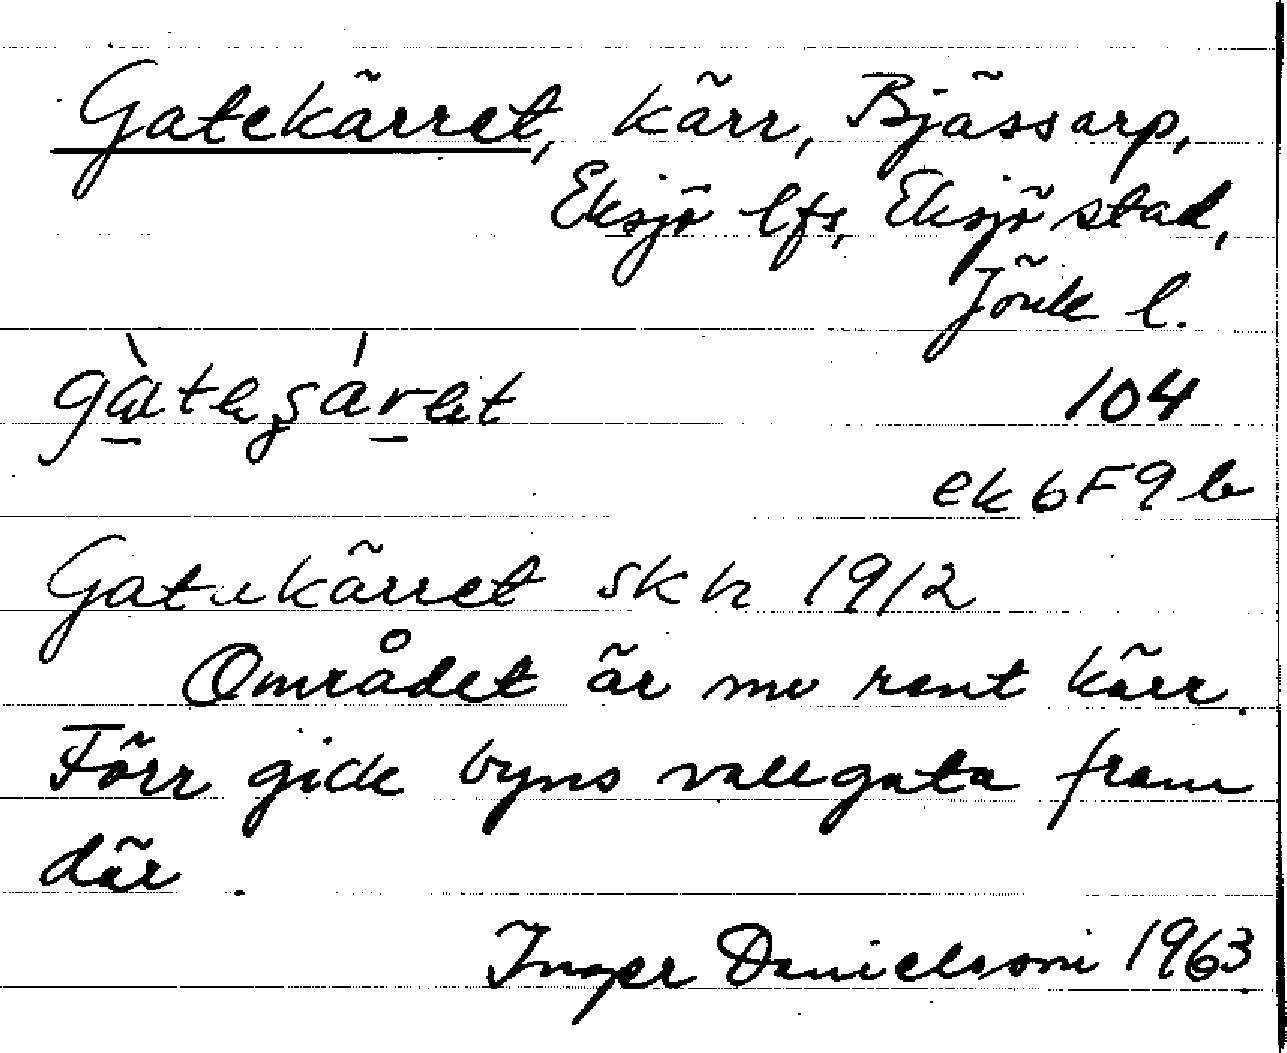 Gatekärret, kärr, Bjässarp,
Eksjö lfs, Eksjö stad,
Jönk l.
104
ek 6F9b
Gatukärret skh 1912
Området är nu rent kärr.
Förr gick byns vallgata fram
där.
Inger Danielsson 1963